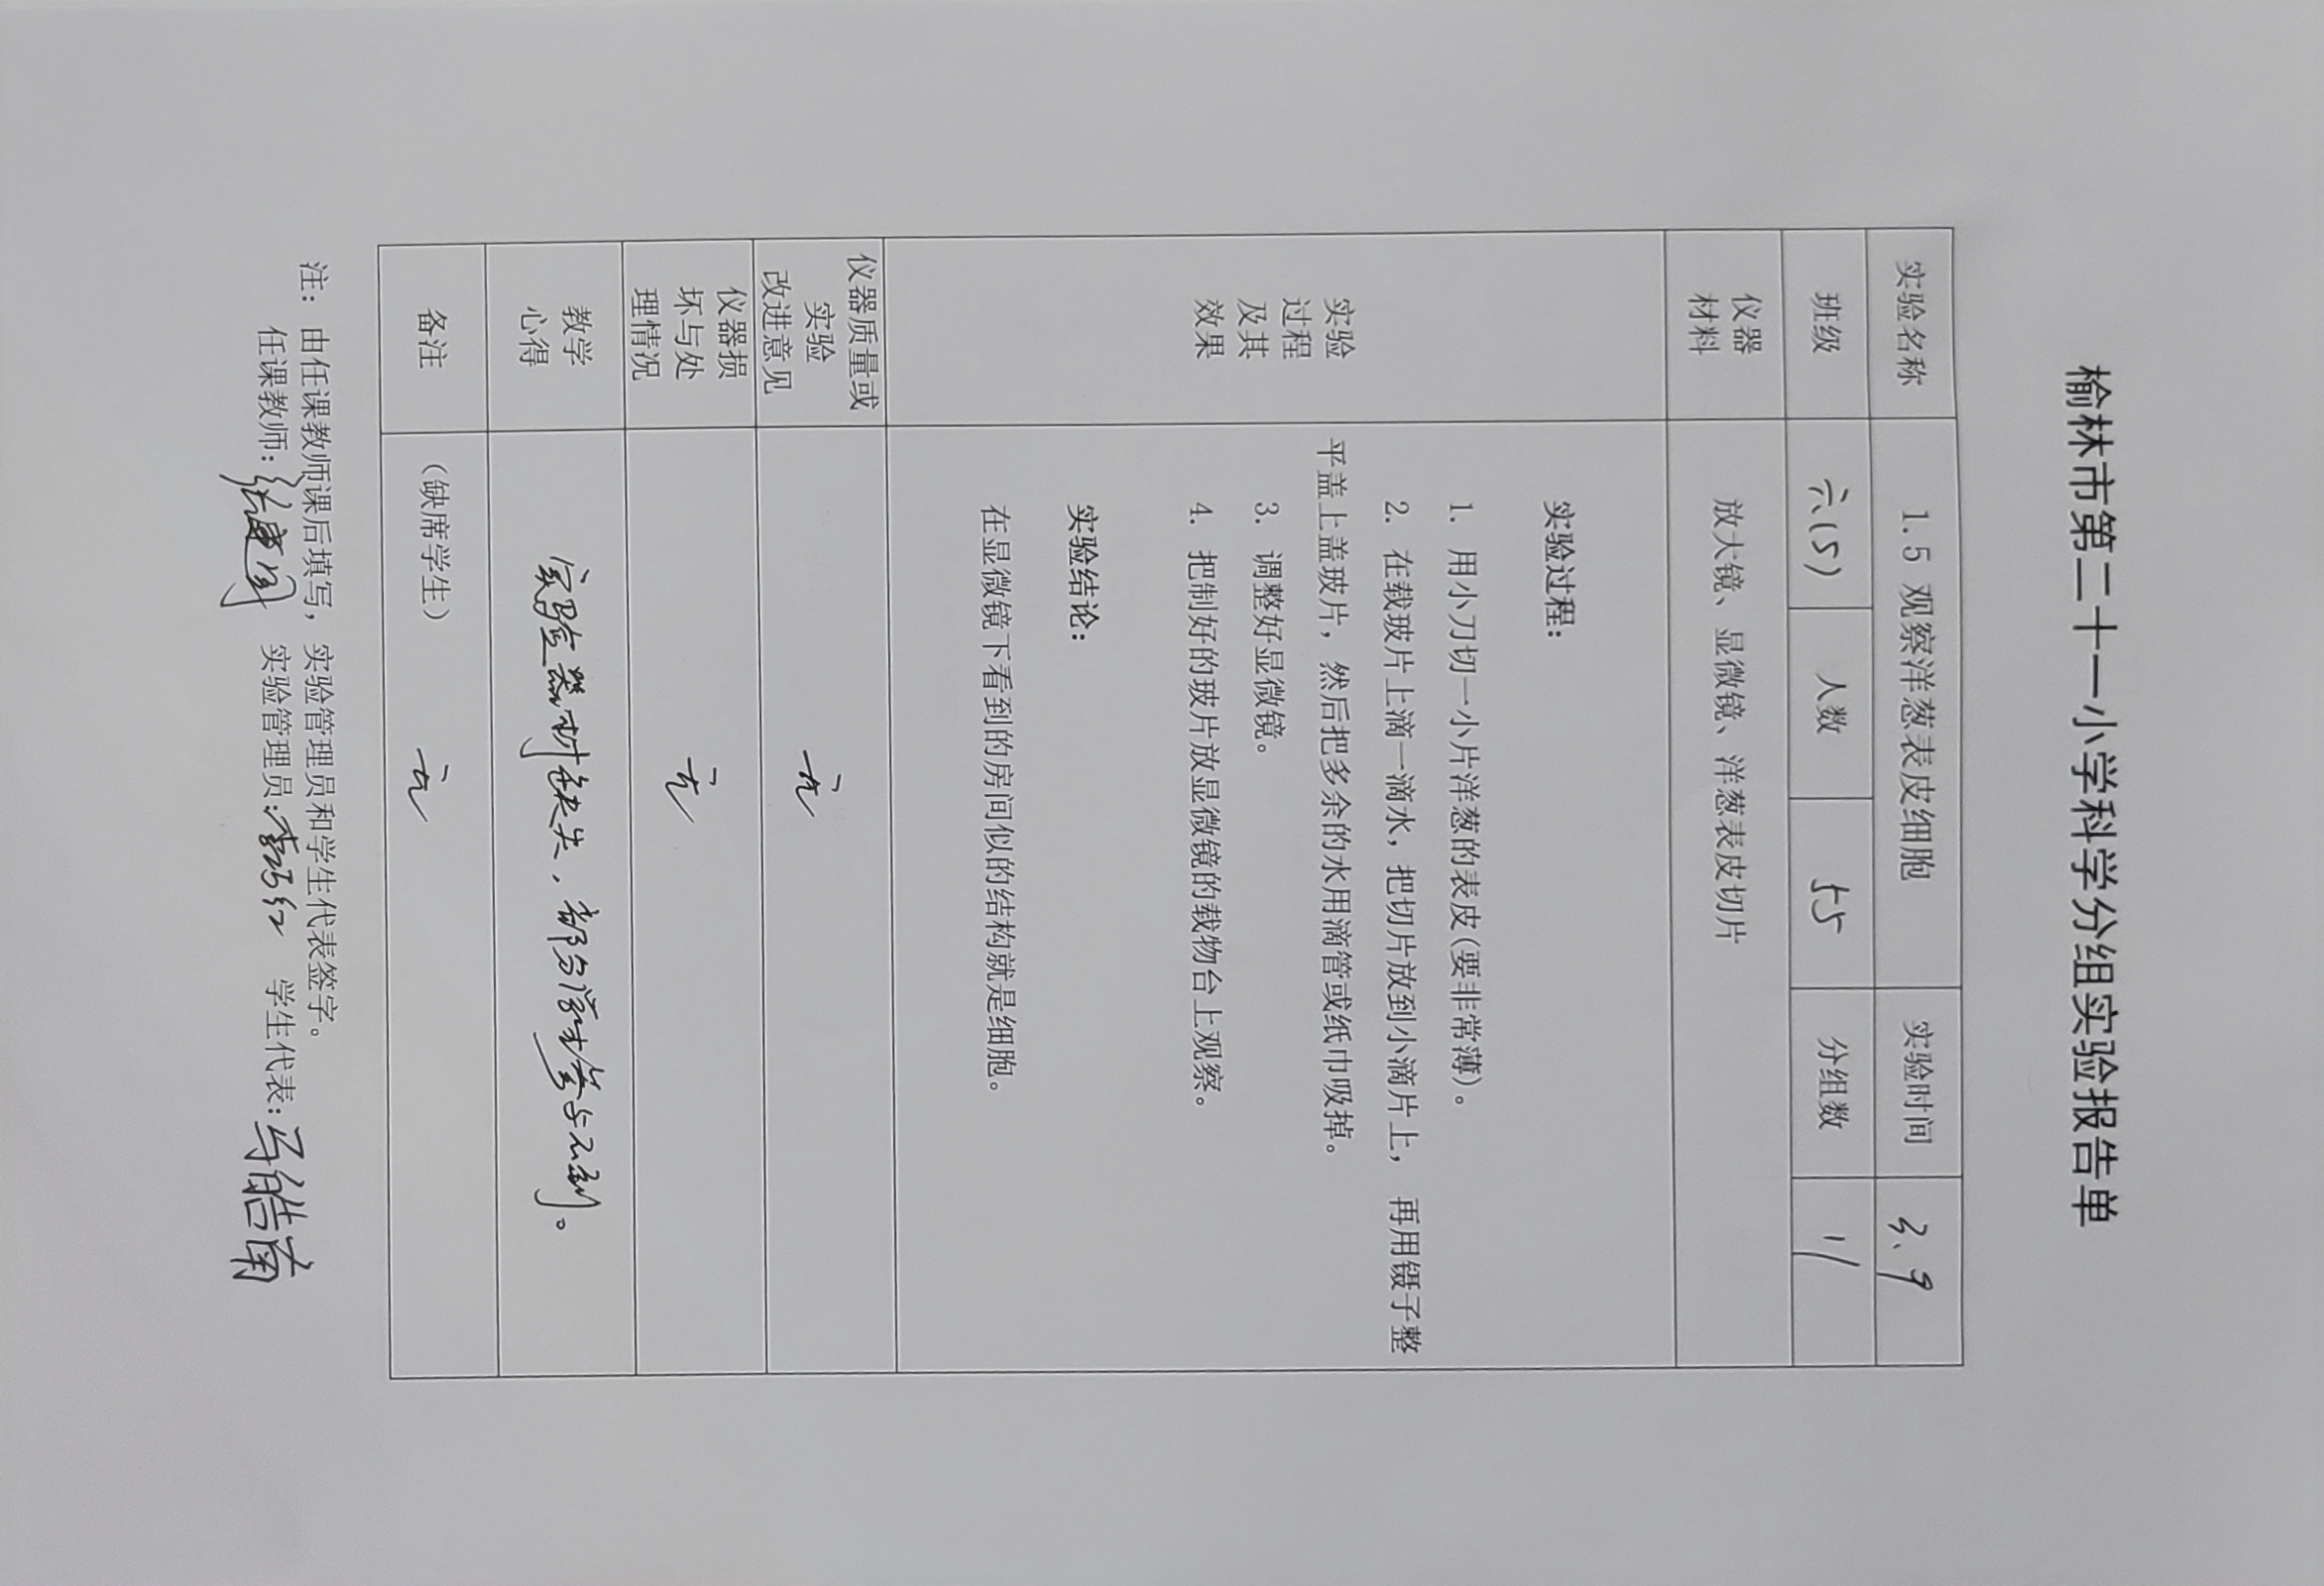 榆林市第二十一小学科学分组实验报告单
实验名称 1.5 观察洋葱表皮细胞 实验时间 3.9
班级 六(5) 人数 55 分组数 11
仪器
材料
放大镜、显微镜、洋葱表皮切片
实验
过程
及其
效果
实验过程：
1. 用小刀切一小片洋葱的表皮(要非常薄)。
2. 在载玻片上滴一滴水，把切片放到小滴片上， 再用镊子整
平盖上盖玻片，然后把多余的水用滴管或纸巾吸掉。
3. 调整好显微镜。
4. 把制好的玻片放显微镜的载物台上观察。
实验结论：
在显微镜下看到的房间似的结构就是细胞。
仪器质量或
实验
改进意见
无
仪器损
坏与处
理情况
无
教学
心得
实验器材缺失，部分学生参与不到。
备注
（缺席学生）
无
注：由任课教师课后填写，实验管理员和学生代表签字。
任课教师： 实验管理员： 学生代表：马皓南